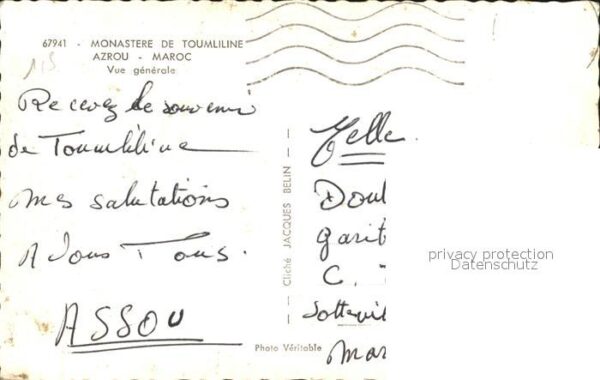 67941 - MONASTERE DE TOUMLILINE
AZROU - MAROC
Vue générale
Recevez le souvenir
de Toumliline
mes salutations
A Vous Tous.
ASSOU
Cliché JACQUES BELIN -
Photo Véritable
Melle
Doul
garit
C.
Sottevil
Mar
privacy protection
Datenschutz